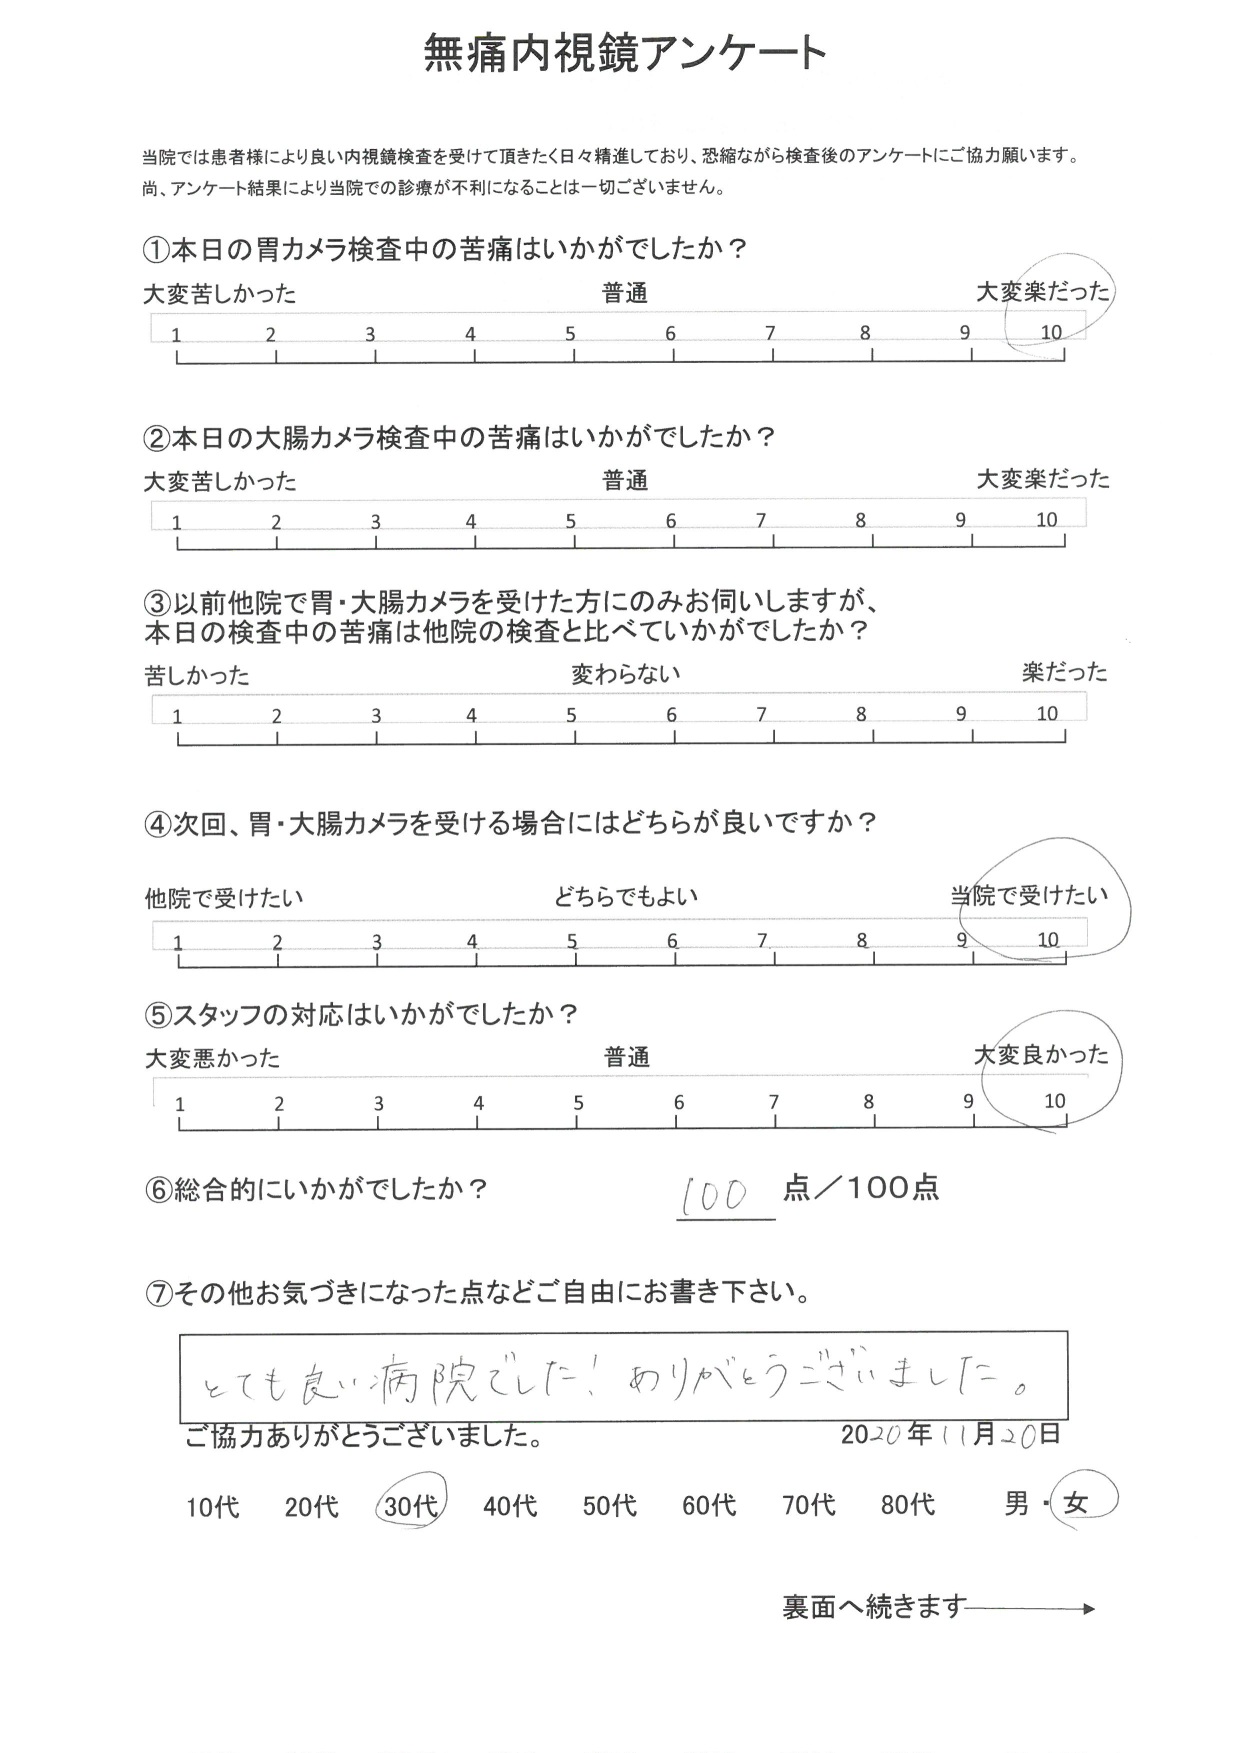 無痛内視鏡アンケート
当院では患者様により良い内視鏡検査を受けて頂きたく日々精進しており、恐縮ながら検査後のアンケートにご協力願います。
尚、アンケート結果により当院での診療が不利になることは一切ございません。
①本日の胃カメラ検査中の苦痛はいかがでしたか？
大変苦しかった 普通 大変楽だった
1 2 3 4 5 6 7 8 9 10
②本日の大腸カメラ検査中の苦痛はいかがでしたか？
大変苦しかった 普通 大変楽だった
1 2 3 4 5 6 7 8 9 10
③以前他院で胃・大腸カメラを受けた方にのみお伺いしますが、
本日の検査中の苦痛は他院の検査と比べていかがでしたか？
苦しかった 変わらない 楽だった
1 2 3 4 5 6 7 8 9 10
④次回、胃・大腸カメラを受ける場合にはどちらが良いですか？
他院で受けたい どちらでもよい 当院で受けたい
1 2 3 4 5 6 7 8 9 10
⑤スタッフの対応はいかがでしたか？
大変悪かった 普通 大変良かった
1 2 3 4 5 6 7 8 9 10
⑥総合的にいかがでしたか？ 100 点／100点
⑦その他お気づきになった点などご自由にお書き下さい。
とても良い病院でした！ありがとうございました。
ご協力ありがとうございました。 2020年11月20日
10代 20代 30代 40代 50代 60代 70代 80代 男・女
裏面へ続きます